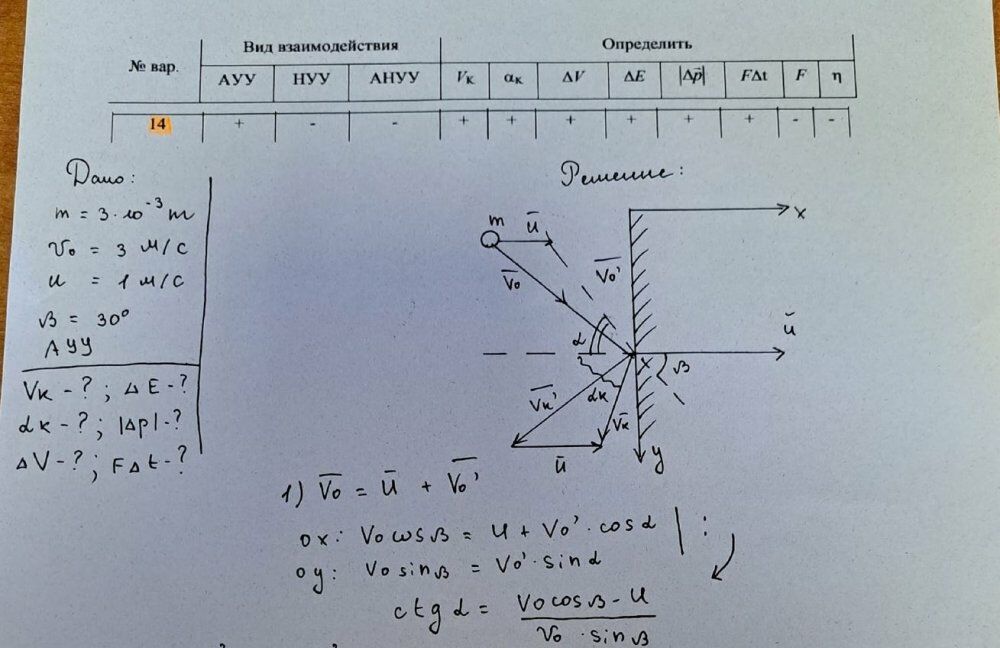 № вар. Вид взаимодействия Определить
АУУ НУУ АНУУ Vк αк ΔV ΔE |Δp̄| FΔt F η
14 + - - + + + + + + - -
Дано:
m = 3·10⁻³ т
V₀ = 3 м/с
u = 1 м/с
β = 30°
АУУ
Vк - ? ; ΔE - ?
αк - ? ; |Δp| - ?
ΔV - ? ; FΔt - ?
Решение:
x
m ū
V̄₀ V̄₀'
ū
α
x β
V̄к' αк V̄к
ū y
1) V̄₀ = ū + V̄₀'
ox: V₀cosβ = u + V₀'·cosα | :
oy: V₀sinβ = V₀'·sinα
ctgα = V₀cosβ - u / V₀·sinβ